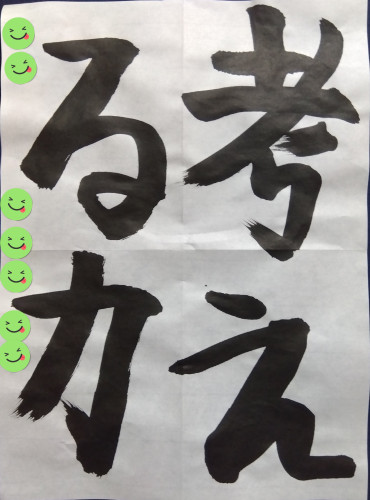 考え
る力